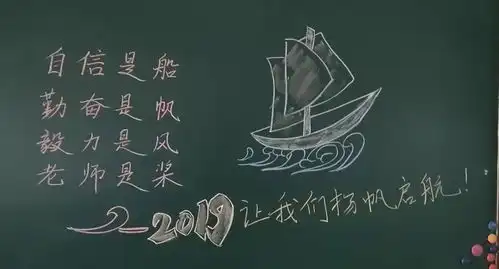 自信是船
勤奋是帆
毅力是风
老师是桨
2019让我们扬帆启航！